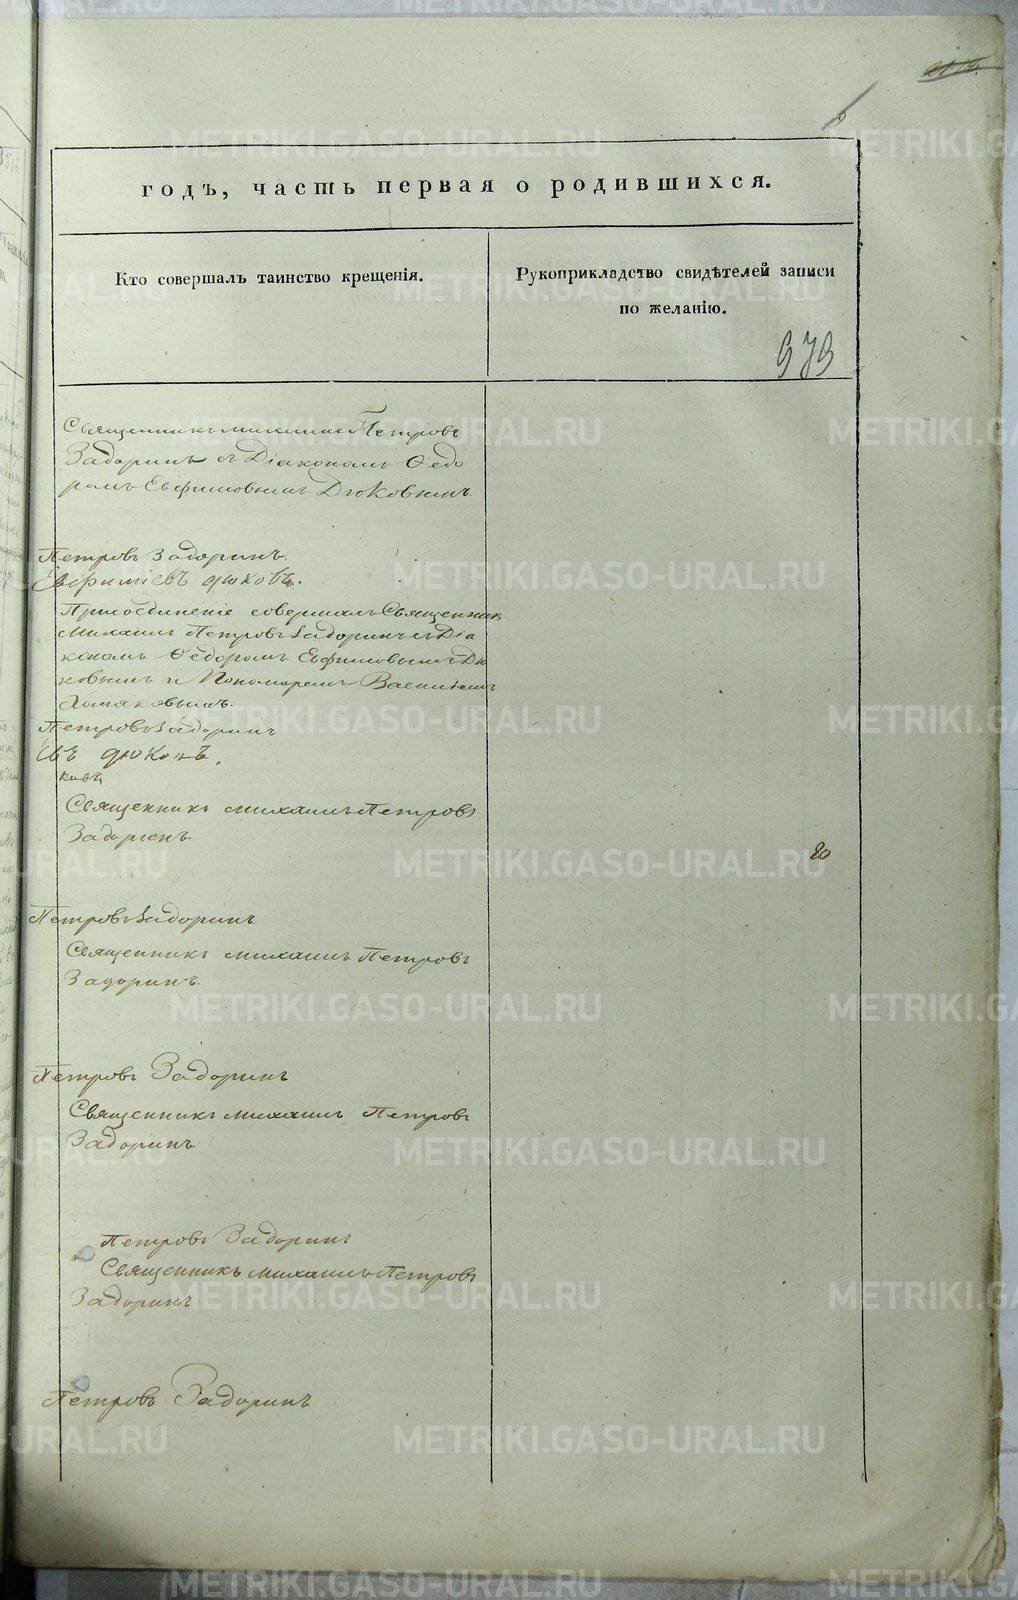 годъ, часть первая о родившихся.
Кто совершалъ таинство крещенія.
Рукоприкладство свидѣтелей записи
по желанію.
979
Священникъ Михаилъ Петровъ
Задоринъ съ Діакономъ Ѳедо
ромъ Евфимовымъ Дюковымъ
Петровъ Задоринъ.
Евфиміевъ Дюковъ.
Присоединеніе совершалъ Священник
Михаилъ Петровъ Задоринъ съ Діа
кономъ Ѳедоромъ Евфимовымъ Дю
ковымъ и Пономаремъ Василіемъ
Хомяковымъ.
Петровъ Задоринъ
евъ Дюковъ.
ковъ
Священникъ Михаилъ Петровъ
Задоринъ
20
Петровъ Задоринъ
Священникъ Михаилъ Петровъ
Задоринъ.
Петровъ Задоринъ
Священникъ Михаилъ Петровъ
Задоринъ
Петровъ Задоринъ
Священникъ Михаилъ Петровъ
Задоринъ
Петровъ Задоринъ
METRIKI.GASO-URAL.RU